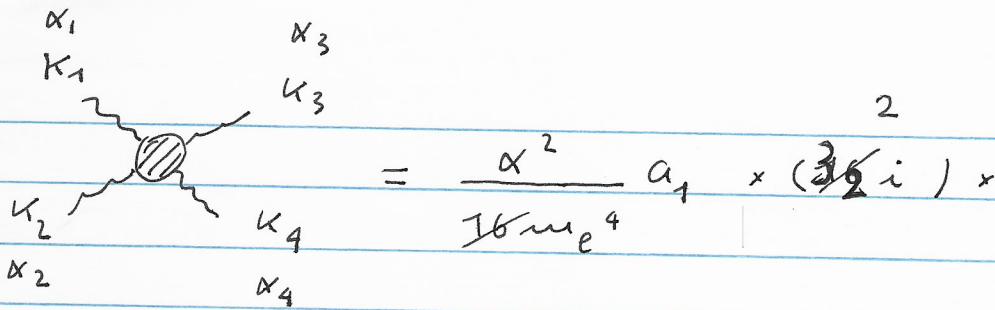 α₁ α₃
K₁ K₃
2
= α² / 16 mₑ⁴ a₁ × (32 i ) ×
K₂ K₄
α₂ α₄